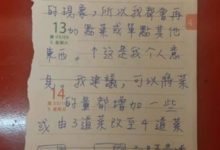 的現象,所以我都會再
13 加點菜或單點其他
東西。↑這是我个人意
見,我建議,可以將菜
14 的量都增加一些
或由3道菜改至4道菜